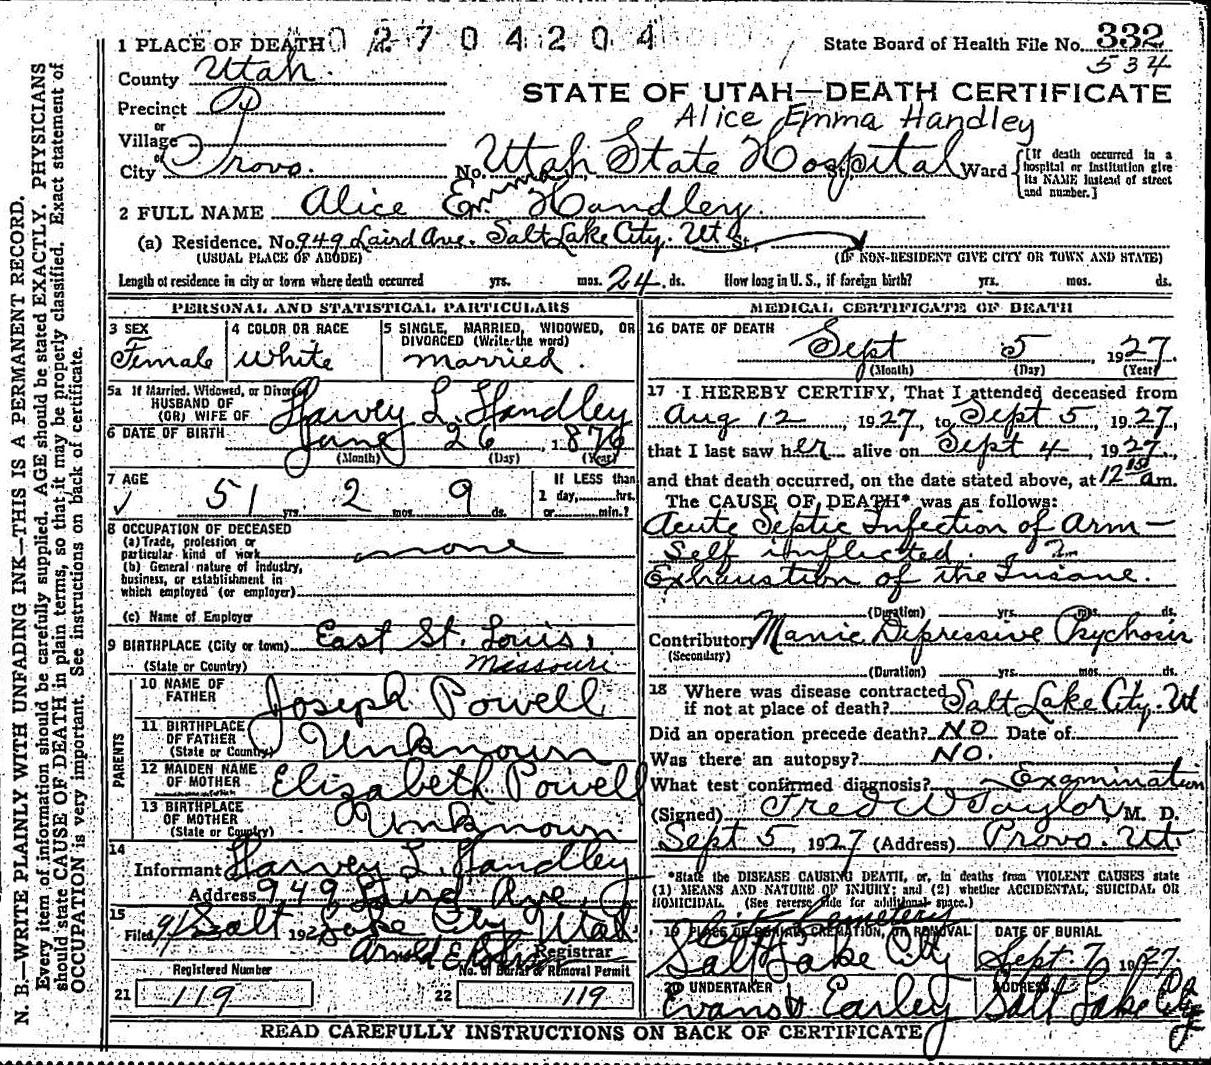 1 PLACE OF DEATH
02704204
State Board of Health File No. 332
534
County Utah.
STATE OF UTAH—DEATH CERTIFICATE
Precinct
or
Alice Emma Handley
Village
or
City Provo.
No. Utah State Hospital St. Ward
[If death occurred in a hospital or institution give its NAME instead of street and number.]
2 FULL NAME Alice Emma Handley.
(a) Residence. No. 949 Laird Ave. Salt Lake City. Ut St.
(USUAL PLACE OF ABODE)
(IF NON-RESIDENT GIVE CITY OR TOWN AND STATE)
Length of residence in city or town where death occurred yrs. mos. 24 ds. How long in U. S., if foreign birth? yrs. mos. ds.
PERSONAL AND STATISTICAL PARTICULARS
3 SEX
Female
4 COLOR OR RACE
White
5 SINGLE, MARRIED, WIDOWED, OR
DIVORCED (Write the word)
married.
5a If Married, Widowed, or Divorced
HUSBAND OF
(OR) WIFE OF Harvey L. Handley
6 DATE OF BIRTH June 26, 1876
(Month) (Day) (Year)
7 AGE
51 yrs. 2 mos. 9 ds.
If LESS than
1 day, hrs.
or min.?
8 OCCUPATION OF DECEASED
(a) Trade, profession or
particular kind of work none
(b) General nature of industry,
business, or establishment in
which employed (or employer)
(c) Name of Employer
9 BIRTHPLACE (City or town) East St. Louis,
(State or Country) Missouri
PARENTS
10 NAME OF
FATHER Joseph Powell
11 BIRTHPLACE
OF FATHER
(State or Country) Unknown
12 MAIDEN NAME
OF MOTHER Elizabeth Powell
13 BIRTHPLACE
OF MOTHER
(State or Country) Unknown.
14
Informant Harvey L. Handley
Address 949 Laird Ave.
Salt Lake City Utah.
15
Filed 9/ 192
Arnold E
Registrar
Registered Number
No. of Burial or Removal Permit
21 119
22 119
MEDICAL CERTIFICATE OF DEATH
16 DATE OF DEATH
Sept 5, 1927.
(Month) (Day) (Year)
17 I HEREBY CERTIFY, That I attended deceased from
Aug 12, 1927, to Sept 5, 1927,
that I last saw her alive on Sept 4, 1927,
and that death occurred, on the date stated above, at 12 am.
The CAUSE OF DEATH* was as follows:
Acute Septic Infection of Arm—
Self inflicted. ?
Exhaustion of the Insane.
(Duration) yrs. mos. ds.
Contributory Manic Depressive Psychosis
(Secondary)
(Duration) yrs. mos. ds.
18 Where was disease contracted
if not at place of death? Salt Lake City. Ut
Did an operation precede death? NO Date of
Was there an autopsy? NO.
What test confirmed diagnosis? Examination
(Signed) Fred W Taylor, M. D.
Sept 5, 1927 (Address) Provo. Ut
*State the DISEASE CAUSING DEATH, or, in deaths from VIOLENT CAUSES state
(1) MEANS AND NATURE OF INJURY; and (2) whether ACCIDENTAL, SUICIDAL OR
HOMICIDAL. (See reverse side for additional space.)
19 PLACE OF BURIAL, CREMATION, OR REMOVAL
City Cemetery
Salt Lake City
DATE OF BURIAL
Sept. 7, 1927.
20 UNDERTAKER
Evans & Earley
ADDRESS
Salt Lake City
READ CAREFULLY INSTRUCTIONS ON BACK OF CERTIFICATE
N. B.—WRITE PLAINLY WITH UNFADING INK—THIS IS A PERMANENT RECORD.
Every item of information should be carefully supplied. AGE should be stated EXACTLY. PHYSICIANS
should state CAUSE OF DEATH in plain terms, so that it may be properly classified. Exact statement of
OCCUPATION is very important. See instructions on back of certificate.